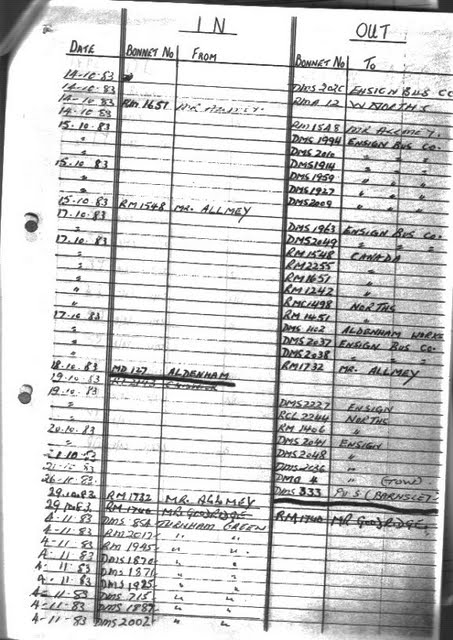 IN OUT
DATE BONNET No FROM BONNET No TO
14-10-83
14-10.83 ENSIGN BUS CO
14-10-83 RM 1651 RMA 12 WNORTHS
14-10-83
15.10.83 RM 1548 MR ALLMEY.
" DMS 1994 ENSIGN BUS CO.
" DMS 2010 " " "
15.10.83 DMS 1914 " " "
" DMS 1959 " " "
" DMS 1927 " " "
" DMS 2009 " " "
15-10-83 RM 1548 MR. ALLMEY
17.10.83 DMS 1963 ENSIGN BUS CO.
" DMS 2049 " " "
17.10.83 RM 1548 CANADA
" RM 2255 "
" RM 1651 "
" RM 1242 "
" RMC 1498 NORTHS
" RM 1451 "
17.10.83 DMS 1102 ALDENHAM WORKS
" DMS 2037 ENSIGN BUS CO.
" DMS 2038 " "
18.10.83 MD 127 ALDENHAM RM 1732 MR. ALLMEY
19.10.83
19.10.83 DMS 2227 ENSIGN
" RCL 2244 NORTHS
" RM 1406 "
20.10.83 DMS 2041 ENSIGN
" DMS 2048 "
21.10.83 DMS 2036 "
21.10.83 DMO 4 " (TOW)
26-10-83 DMS 333 P.V.S (BARNSLEY)
29.10.83 RM 1732 MR. ALLMEY
29.10.83 RM 1740 MR GOODRIDGE RM 1740 MR GOODRIDGE
4-11-83 DMS 854 TURNHAM GREEN
4-11-83 RM 2017 " "
4-11-83 RM 1995 " "
4-11-83 DMS 1870 " "
4-11-83 DMS 1871 " "
4-11-83 DMS 1925 " "
4-11-83 DMS 715 " "
4-11-83 DMS 1887 " "
4-11-83 DMS 2002 " "